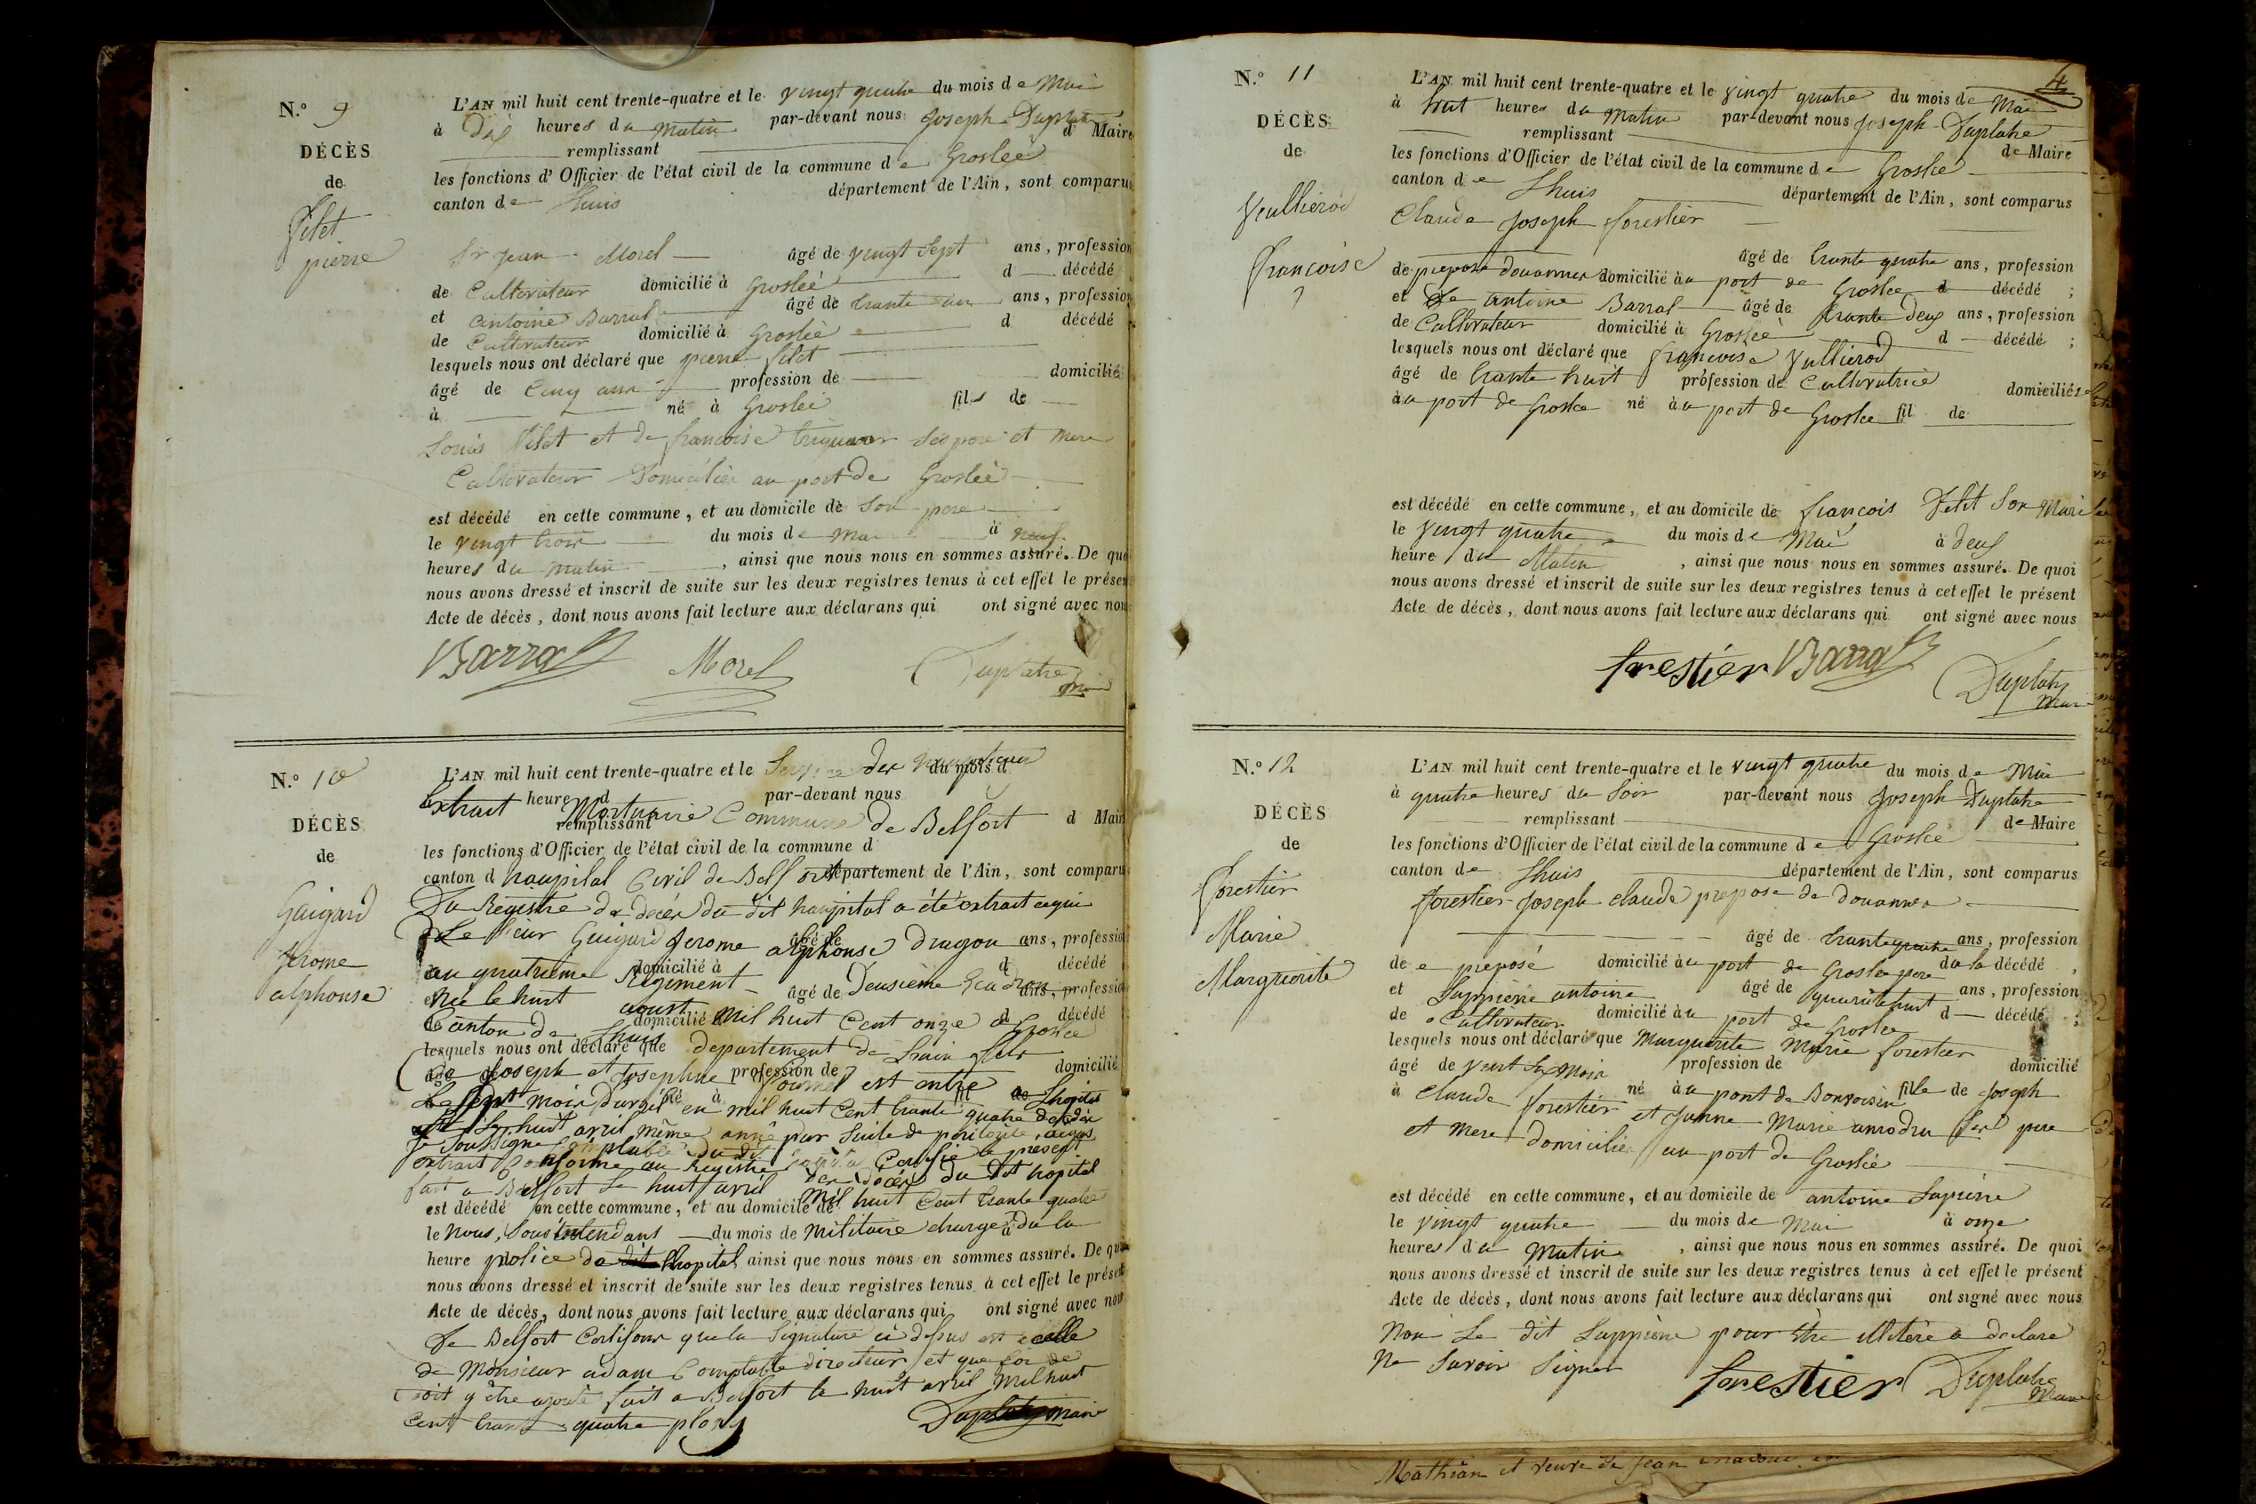 N.º 9
DÉCÈS
de
Filet
pierre
L'AN mil huit cent trente-quatre et le vingt quatre du mois de Mai
à Dix heures du matin par-devant nous Joseph Duplatre
remplissant d Maire
les fonctions d'Officier de l'état civil de la commune de Groslée
canton de Lhuis département de l'Ain, sont comparus
Sr jean Morel âgé de vingt Sept ans, profession
de Cultivateur domicilié à Groslée d décédé
et Antoine Barral âgé de trante ans, profession
de Cultivateur domicilié à Groslée d décédé
lesquels nous ont déclaré que pierre filet
âgé de Cinq ans profession de domicilié
à né à Groslée fils de
Louis filet et de francoise Ses pere et mere
Cultivateur Domicilié au port de Groslée
est décédé en cette commune, et au domicile de Son pere
le vingt trois du mois de Mai à neuf
heures du matin, ainsi que nous nous en sommes assuré. De quoi
nous avons dressé et inscrit de suite sur les deux registres tenus à cet effet le présent
Acte de décès, dont nous avons fait lecture aux déclarans qui ont signé avec nous
Barral Morel Duplatre
N.º 10
DÉCÈS
de
Gaigard
Jerome
alphonse
L'AN mil huit cent trente-quatre et le Service des du mois d
Extrait heure d Mortuaire par-devant nous
remplissant Commune de Belfort d Maire
les fonctions d'Officier de l'état civil de la commune d
canton d haupital Civil de Belfort département de l'Ain, sont comparus
Du Registre de décès du dit haupital a été extrait ce qui
Le Sieur Gaigard Jerome alphonse âgé de dragon ans, profession
au quatrieme Regiment domicilié à d décédé
et Née le huit aoust âgé de Deusième Escadron ans, profession
de Canton de Lhuis domicilié à Mil huit Cent onze a Groslée d décédé
lesquels nous ont déclaré que departement de Lain fils
âgé de de Joseph et Josephine profession de Fournel est entré domicilié
à Le Sept mois Davril né à en mil huit Cent trante quatre fil de Lhopital
huit avril même année par Suite de peritonite
Je Soussigné Comptable du dit Certifie le present
extrait Conforme au Registre des décés du dit hopital
fait a Belfort Le huit avril Mil huit Cent trante quatre
est décédé en cette commune, et au domicile de
le Nous, Sous intendans du mois de Militaire chargé à de la
heure police de dit Lhopital ainsi que nous nous en sommes assuré. De quoi
nous avons dressé et inscrit de suite sur les deux registres tenus à cet effet le présent
Acte de décès, dont nous avons fait lecture aux déclarans qui ont signé avec nous
De Belfort Certifions que la Signature ci dessus est celle
de Monsieur adam Comptable directeur et que foi de
doit y être ajouté fait a Belfort le huit avril Mil huit
Cent trante quatre Duplatre maire
N.º 11
4
DÉCÈS
de
Vullierod
francoise
L'AN mil huit cent trente-quatre et le vingt quatre du mois de Mai
à huit heures du Matin par-devant nous Joseph Duplatre
remplissant de Maire
les fonctions d'Officier de l'état civil de la commune de Groslée
canton de Lhuis département de l'Ain, sont comparus
Claude Joseph forestier
âgé de trante quatre ans, profession
de preposé douannes domicilié au port de Groslée d décédé ;
et Le antoine Barral âgé de trante deux ans, profession
de Cultivateur domicilié à Groslée d décédé ;
lesquels nous ont déclaré que francoise Vulliérod
âgé de trante huit profession de Cultivatrice domiciliée
au port de Groslée né au port de Groslée fil de
est décédé en cette commune, et au domicile de francois Filit Son Mari
le vingt quatre du mois de Mai à deux
heure du Matin, ainsi que nous nous en sommes assuré. De quoi
nous avons dressé et inscrit de suite sur les deux registres tenus à cet effet le présent
Acte de décès, dont nous avons fait lecture aux déclarans qui ont signé avec nous
forestier Barral Duplatre
Maire
N.º 12
DÉCÈS
de
Forestier
Marie
Marguerite
L'AN mil huit cent trente-quatre et le vingt quatre du mois de Mai
à quatre heures du Soir par-devant nous Joseph Duplatre
remplissant de Maire
les fonctions d'Officier de l'état civil de la commune de Groslée
canton de Lhuis département de l'Ain, sont comparus
forestier Joseph claude preposé de douannes
âgé de trante quatre ans, profession
de preposé domicilié au port de Groslée pere de la décédé ,
et Suppiene antoine âgé de quarante huit ans, profession
de Cultivateur domicilié au port de Groslée d décédé ;
lesquels nous ont déclaré que Marguerite Marie forestier
âgé de Mois profession de domicilié
à Claude forestier né au pont de Bonvoisin fille de Joseph
et Mere et Jeanne Marie pere
domicilié au port de Groslée
est décédé en cette commune, et au domicile de antoine Supiene
le vingt quatre du mois de Mai à onze
heures du Matin, ainsi que nous nous en sommes assuré. De quoi
nous avons dressé et inscrit de suite sur les deux registres tenus à cet effet le présent
Acte de décès, dont nous avons fait lecture aux déclarans qui ont signé avec nous
Non Le dit Suppiene pour être illitéré a declaré
Ne Savoir Signer forestier Duplatre
Maire
Mathian et veuve de Jean